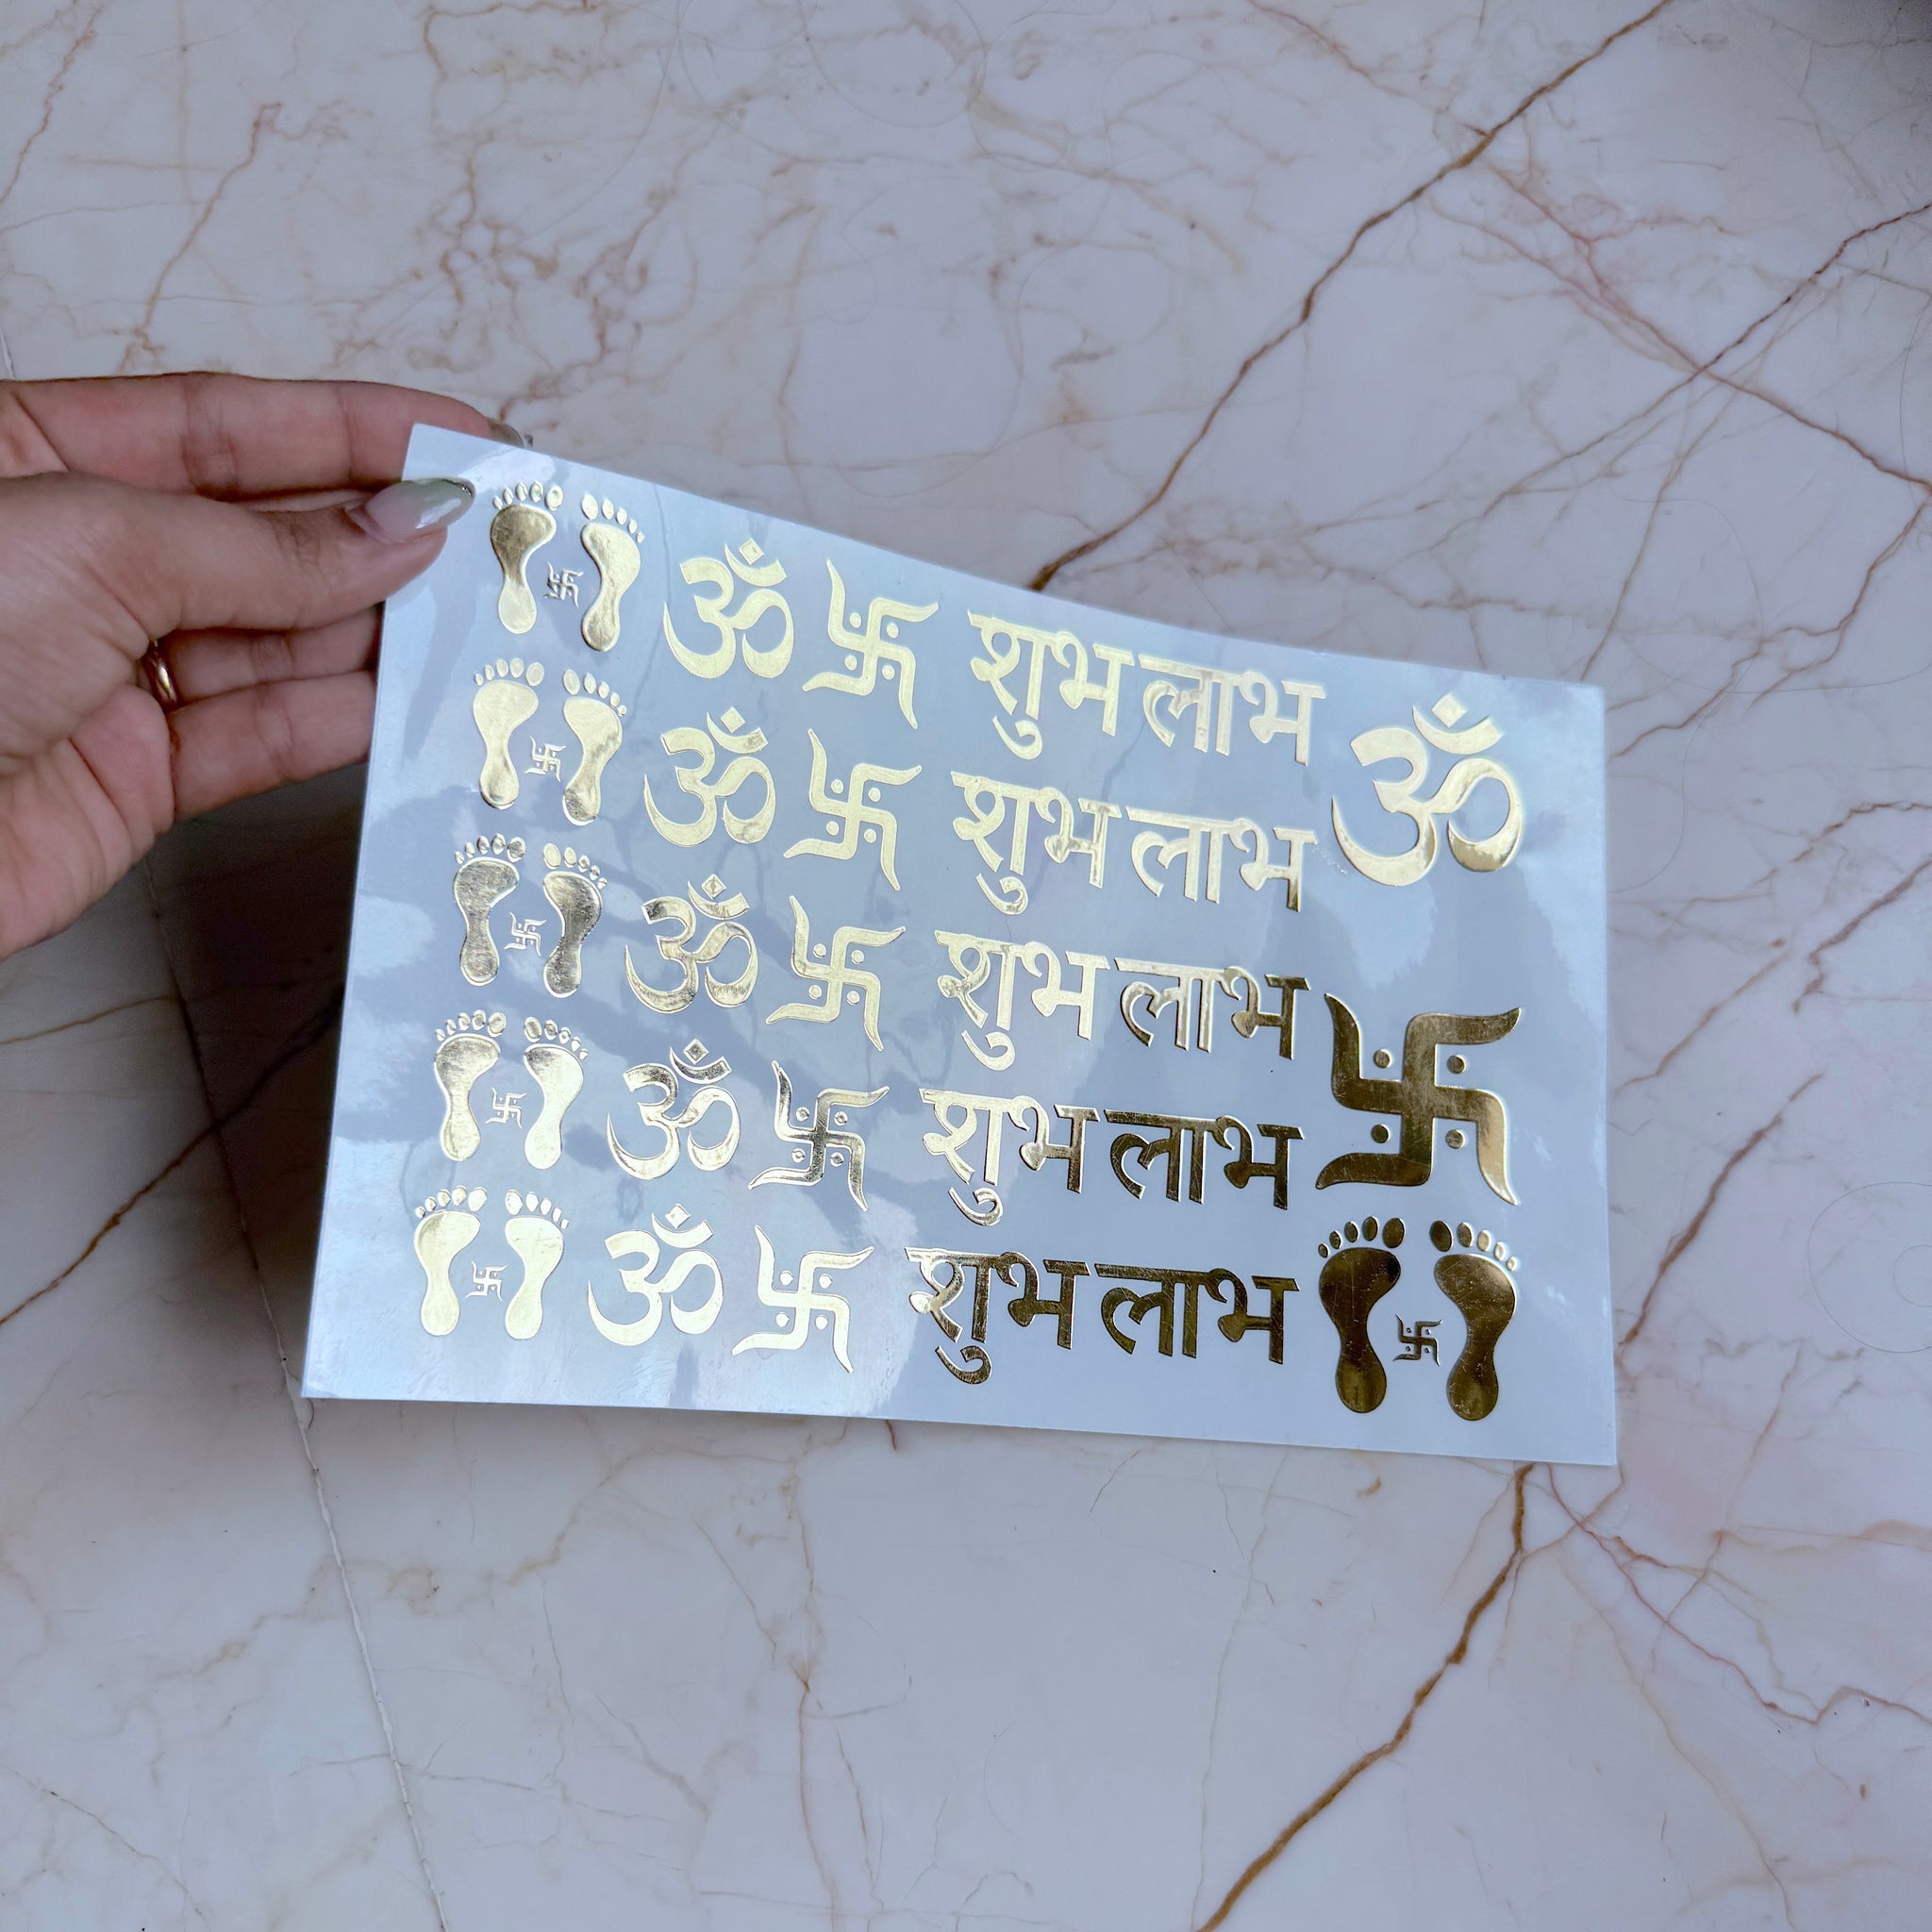 ॐ 卐 शुभ लाभ ॐ
ॐ 卐 शुभ लाभ
ॐ 卐 शुभ लाभ 卐
ॐ 卐 शुभ लाभ
ॐ 卐 शुभ लाभ